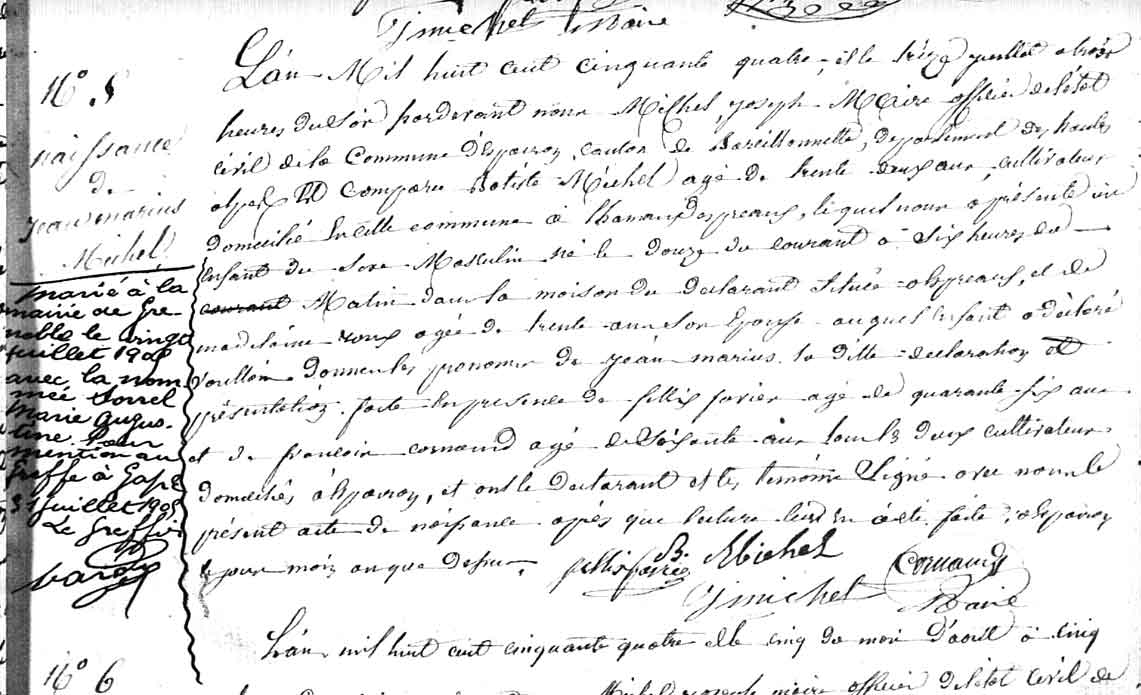 Jmichel Maire
N° 5
naissance
de
jean marius
Michel
marié à la
mairie de Gre-
noble le vingt
juillet 1905
avec la nom-
mée Sorrel
Marie Augus-
tine. Pour
mention au
Greffe à Gap le
31 juillet 1905
Le Greffier
L'án Mil huit cent cinquante quatre, et le treize juillet a trois
heures du Soir pardevant nous Michel, joseph Maire officier de l'état
civil de la Commune d'Esparron, canton de Barcillonnette, département des hautes
alpes est Comparu Batiste Michel agé de trente deux ans, cultivateur
domicilié en cette commune à hameau d'espreaux, lequel nous a présenté un
Enfant du Sexe Masculin né le Douze du courant à Six heures du
courant Matin dans la maison du déclarant Située a Espreaux, et de
madelaine roux agée de trente ans Son Epouse auquel Enfant a déclaré
vouloir Donner les prenoms de jeán marius. la ditte déclaration et
présentation faite En presence de féllix farier agé de quarante six ans
et de françois cornand agé de Soisante ans tous les deux cultivateurs
Domiciliés à Esparron, et ont le Déclarant et les temoins Signé avec nous le
présent acte de naissance après que lecture leur En à été faite, a Esparron
le jour mois an que dessus.
B. Michel
féllis farié
Cornand
Jmichel Maire
N° 6
L'án mil huit cent cinquante quatre et le cinq du mois d'aout à cinq
Michel joseph maire officier de l'état civil de